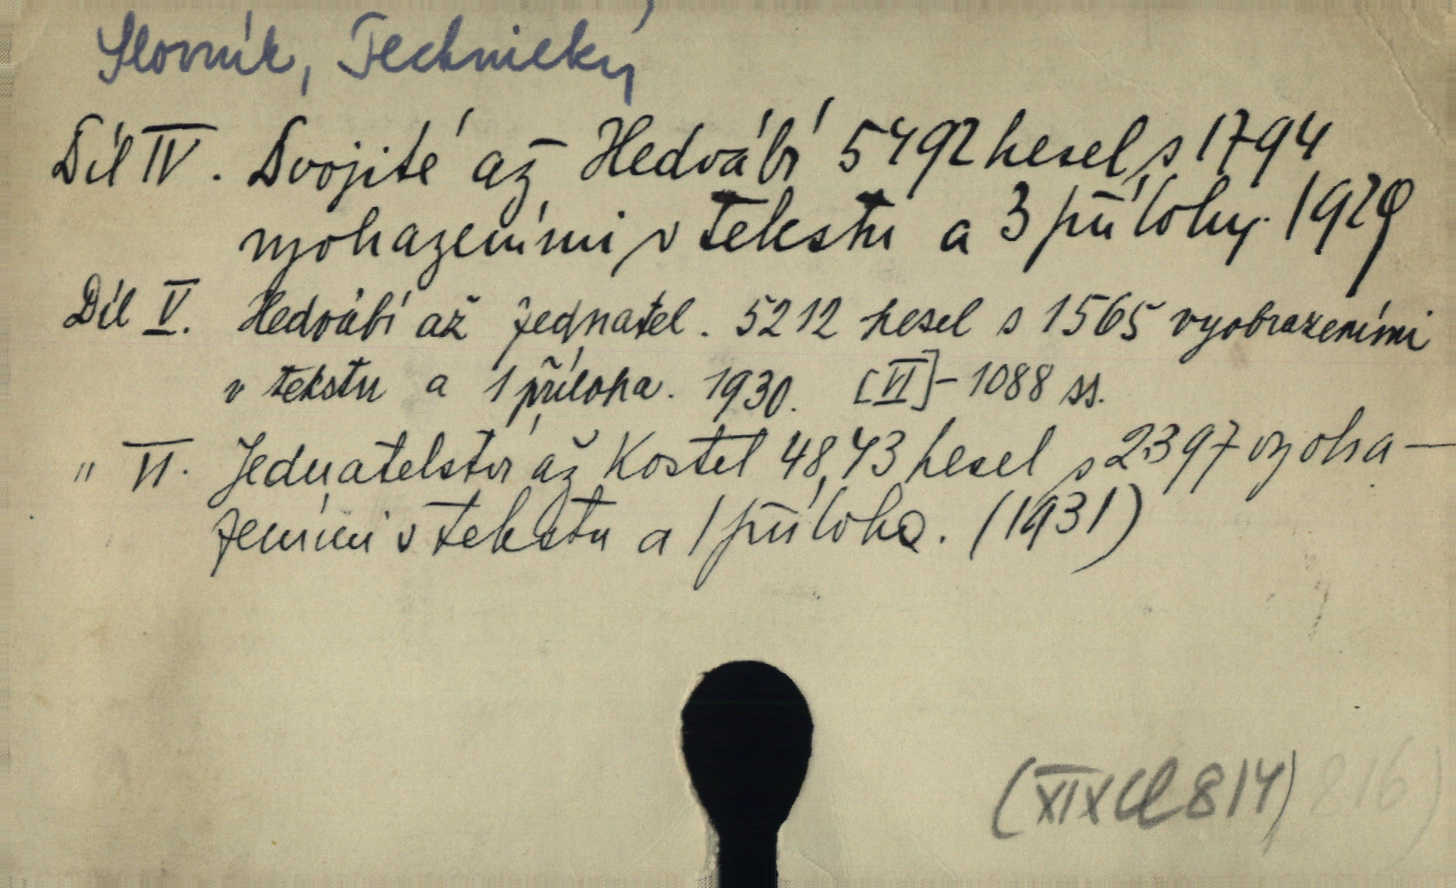 Slovník, Technický
Díl IV. Dvojité až Hedvábí 5492 hesel s 1794
vyobrazeními v tekstu a 3 přílohy. 1929
Díl V. Hedvábí až Jednatel. 5212 hesel s 1565 vyobrazeními
v tekstu a 1 příloha. 1930. [VI]-1088 ss.
" VI. Jednatelství až Kostel 48,43 hesel s 2397 vyobra-
zeními v tekstu a 1 příloha. (1931)
(XIX Cl 814) 816)